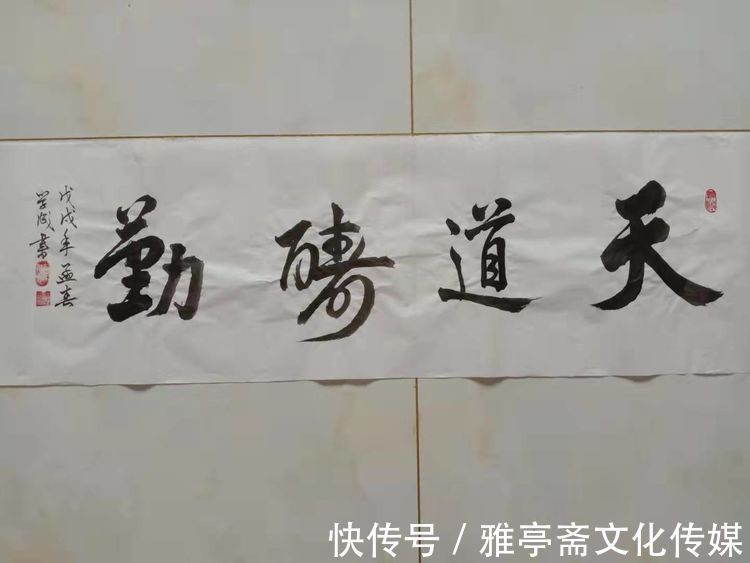 天道酬勤
戊戌年孟春
学谦书
快传号 / 雅亭斋文化传媒